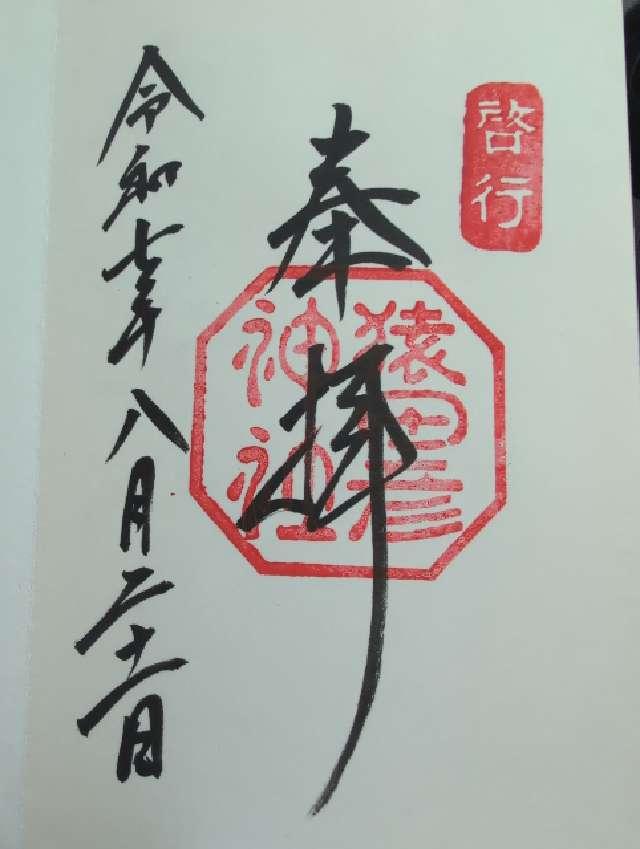 啓行
奉拝
猿田彦
神社
令和七年八月二十一日